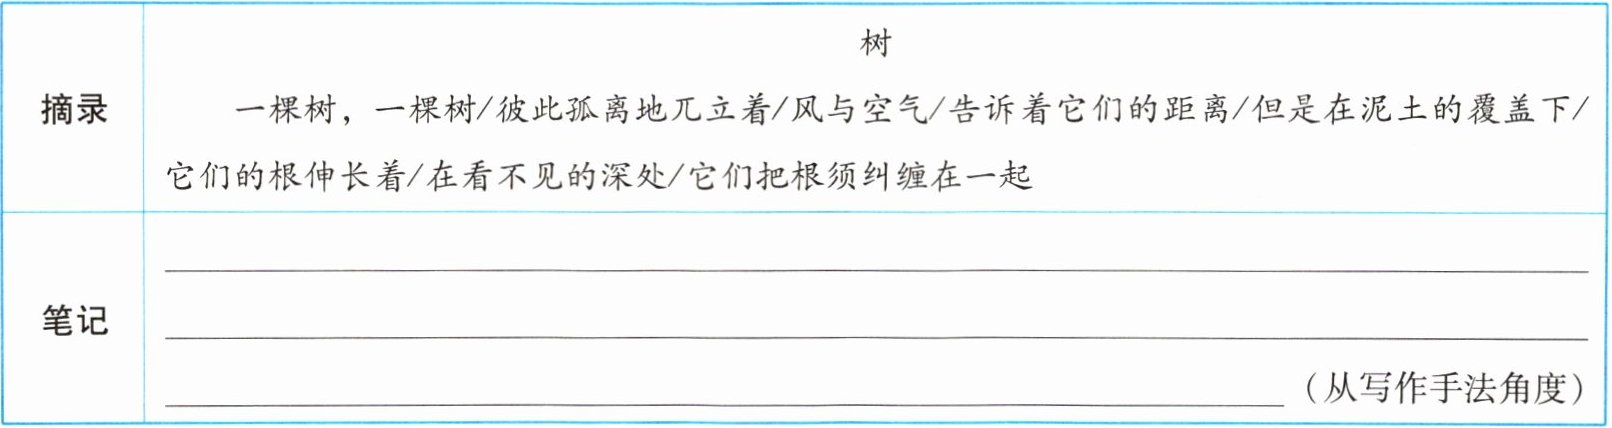 树
摘录
一棵树，一棵树/彼此孤离地兀立着/风与空气/告诉着它们的距离/但是在泥土的覆盖下/
它们的根伸长着/在看不见的深处/它们把根须纠缠在一起
笔记
（从写作手法角度）